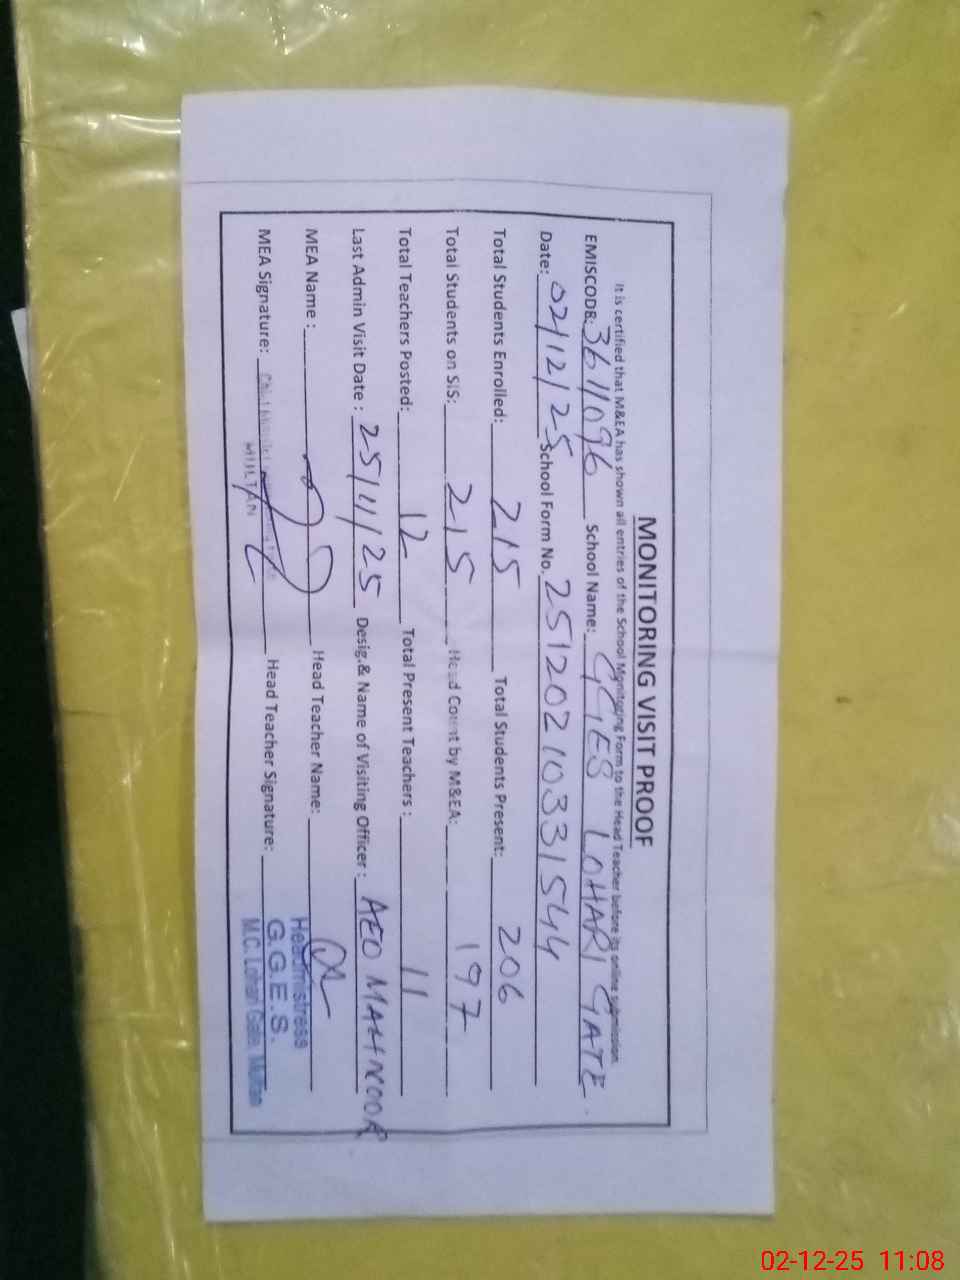 MONITORING VISIT PROOF
It is certified that M&EA has shown all entries of the School Monitoring Form to the Head Teacher before its online submission.
EMISCODE: 36111096 School Name: GGES LOHARI GATE
Date: 02/12/25 School Form No. 25120210331544
Total Students Enrolled: 215 Total Students Present: 206
Total Students on SIS: 215 Head Count by M&EA: 197
Total Teachers Posted: 12 Total Present Teachers : 11
Last Admin Visit Date : 25/11/25 Desig.& Name of Visiting Officer : AEO MAHNOOR
MEA Name : Head Teacher Name:
MEA Signature: Head Teacher Signature:
MULTAN
Headmistress
G.G.E.S.
M.C. Lohari Gate, Multan
02-12-25 11:08